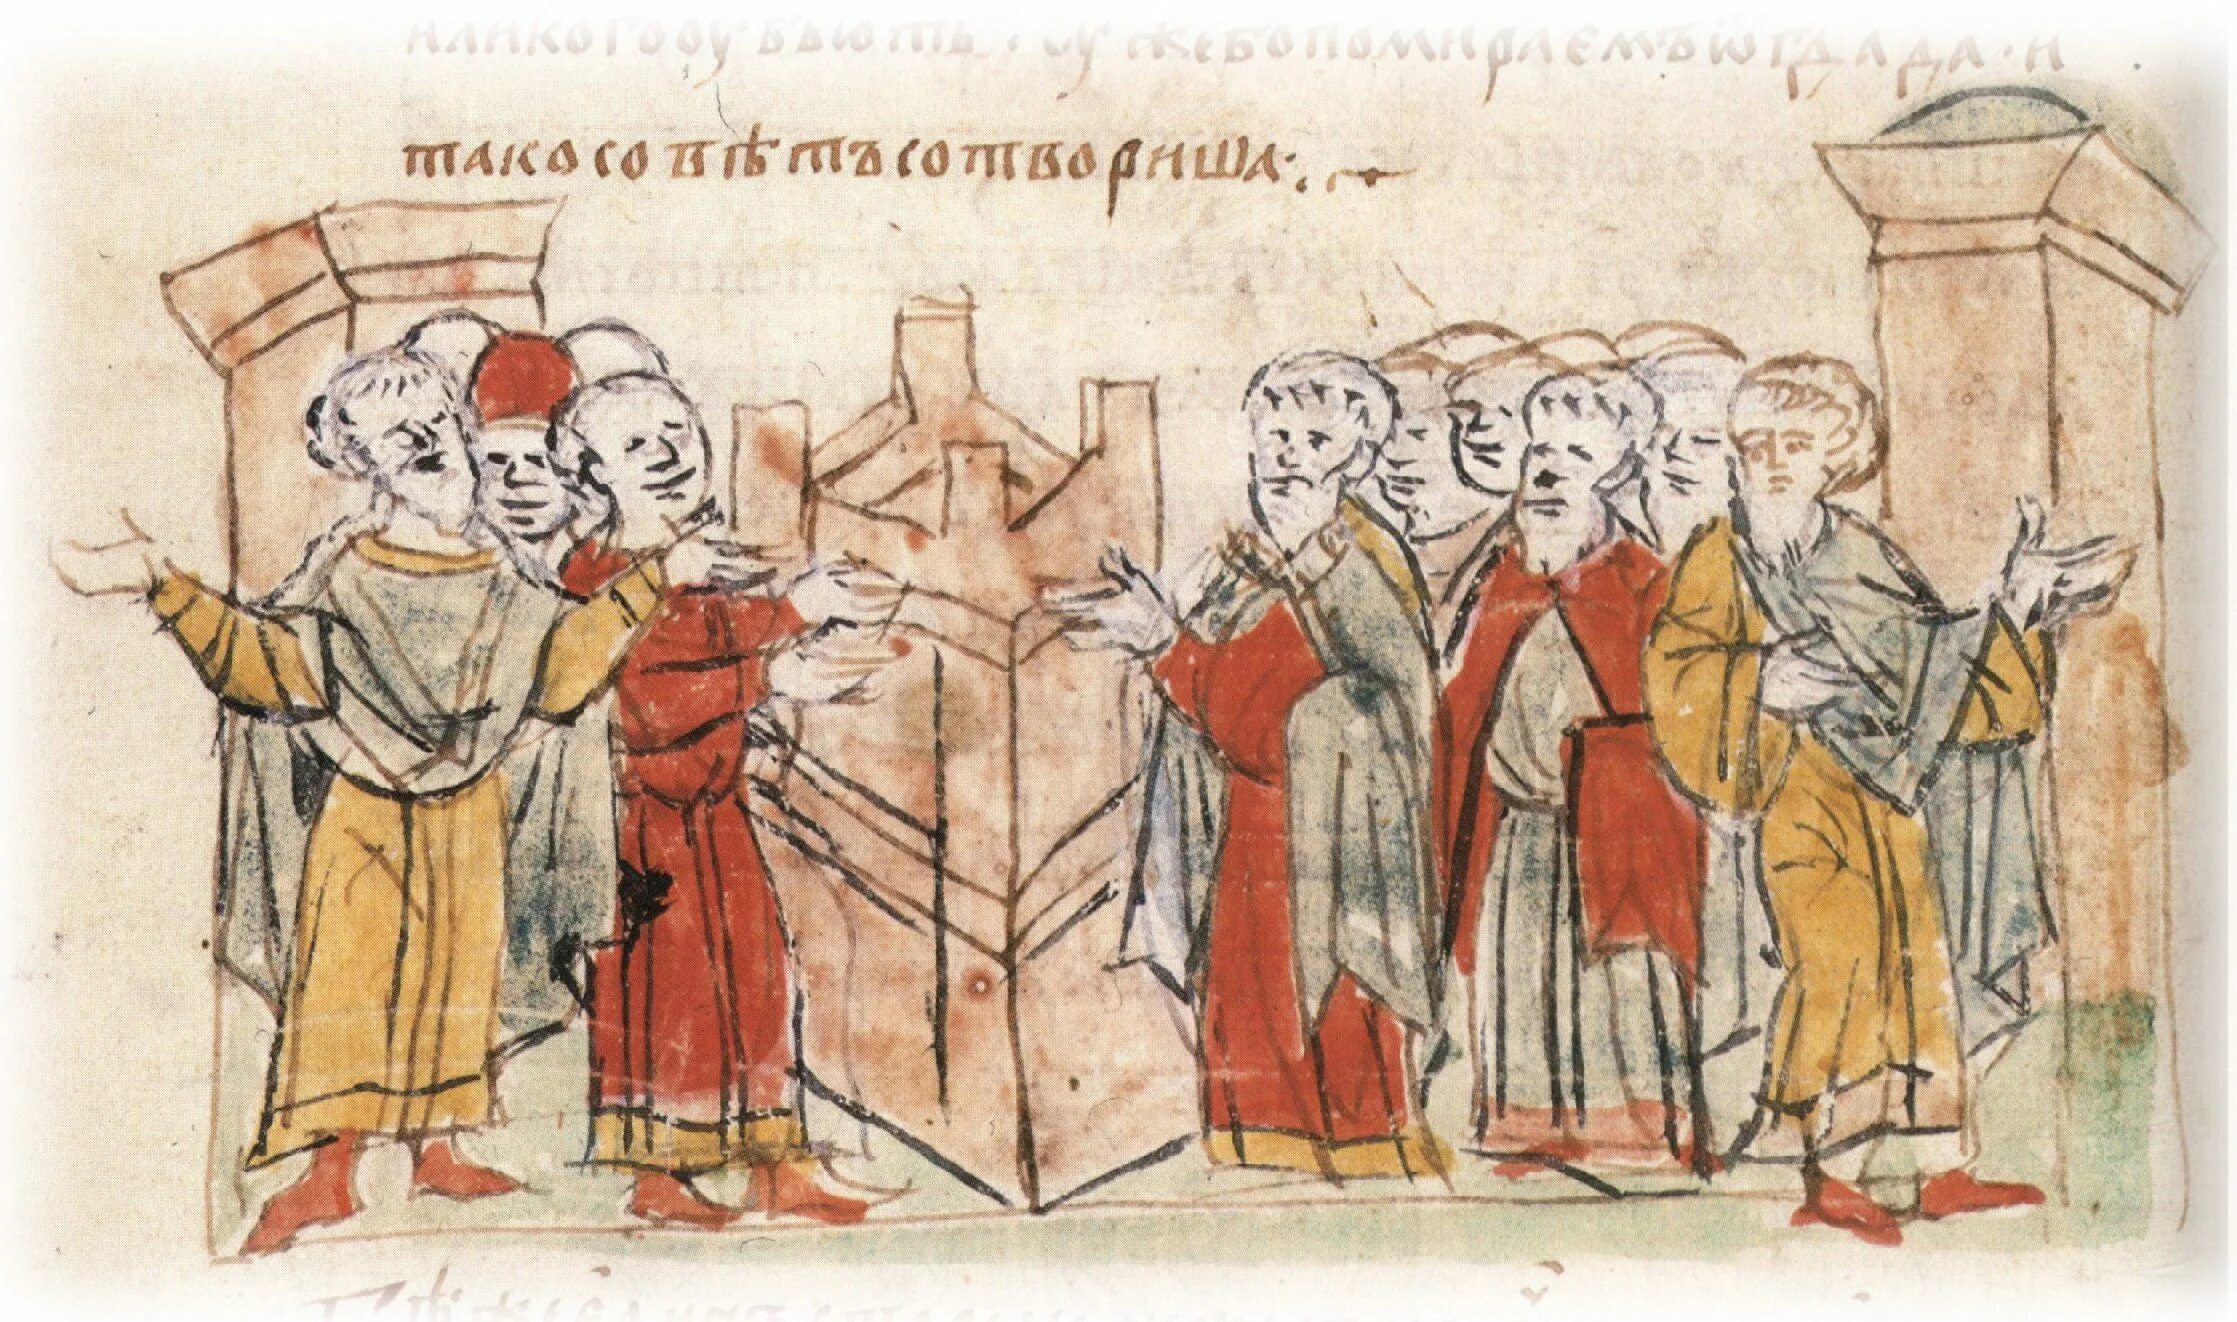 или кого оубьють · оуже бо помираемъ ѿ глада · и
тако совѣтъ сотвориша ·: